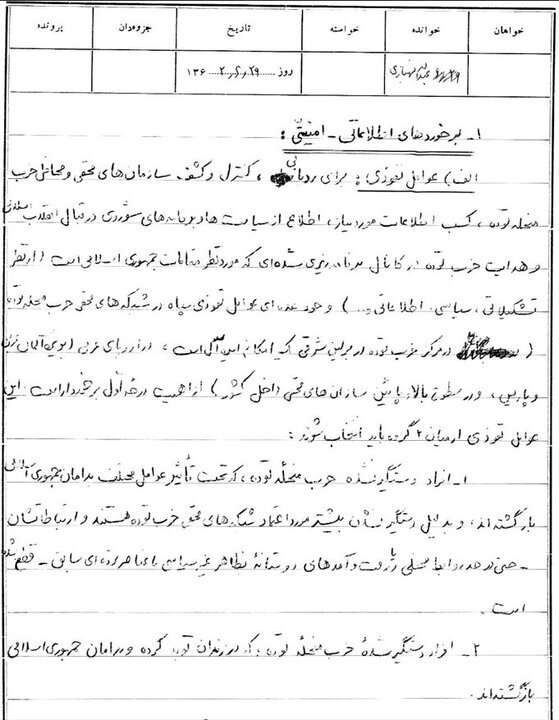 خواهان خوانده خواسته تاریخ جزوه‌دان پرونده
عبداله شهبازی روز ..... ۲۹ ر ۶ ر ۲ ۱۳۶
۱- برخوردهای اطلاعاتی - امنیتی :
الف) عوامل نفوذی : برای ردیابی ، کنترل و کشف سازمان‌های مخفی و محافل حزب
منحله توده ، کسب اطلاعات مورد نیاز ، اطلاع از سیاست‌ها و برنامه‌های شوروی در قبال انقلاب اسلامی
و هدایت حزب توده در کانال برنامه‌ریزی شده‌ای که مورد نظر مقامات جمهوری اسلامی است ( از نظر
تشکیلاتی ، سیاسی ، اطلاعاتی و... ) وجود عده‌ای عوامل نفوذی سپاه در شبکه‌های مخفی حزب منحله توده
( در مرکز حزب توده در برلین شرقی که امکان این است ، در اروپای غربی آلمان غربی
و پاریس ، و در سطوح بالا و پائین سازمان‌های مخفی داخل کشور ) از اهمیت درجه اول برخوردار است . این
عوامل نفوذی از میان ۲ گروه باید انتخاب شوند :
۱- افراد دستگیر نشده حزب منحله توده ، که تحت تأثیر عوامل مختلف به دامان جمهوری اسلامی
بازگشته‌اند ، و به دلیل دستگیر نشدن بیشتر مورد اعتماد شبکه‌های مخفی حزب توده هستند و ارتباطاتشان
- حتی در حد روابط محفلی یا رفت و آمدهای دوستانهٔ بظاهر غیرسیاسی با عناصر توده‌ای سابق - قطع نشده
است .
۲- افراد دستگیر شدهٔ حزب منحله توده که در زندان توبه کرده و به دامان جمهوری اسلامی
بازگشته‌اند .